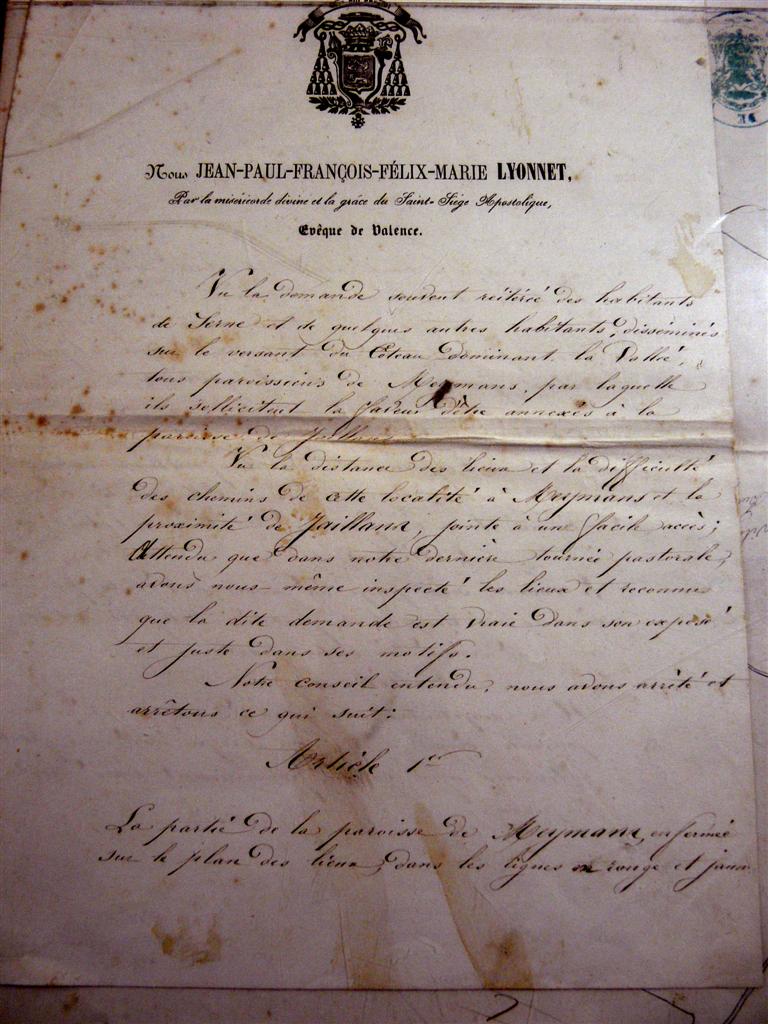 Nous JEAN-PAUL-FRANÇOIS-FÉLIX-MARIE LYONNET,
Par la miséricorde divine et la grâce du Saint-Siège Apostolique,
Evêque de Valence.
Vu la demande souvent réitérée des habitants
de Serne et de quelques autres habitants, disséminés
sur le versant du Côteau dominant la Vallée,
tous paroissiens de Meymans, par laquelle
ils sollicitent la faveur d'être annexés à la
paroisse de Jaillans
Vu la distance des lieux et la difficulté
des chemins de cette localité à Meymans et la
proximité de Jaillans, jointe à un facile accès;
Attendu que dans notre dernière tournée pastorale,
avons nous-même inspecté les lieux et reconnu
que la dite demande est vraie dans son exposé
et juste dans ses motifs.
Notre conseil entendu, nous avons arrêté et
arrêtons ce qui suit:
Article 1er
La partie de la paroisse de Meymans, enfermée
sur le plan des lieux, dans les lignes en rouge et jaune